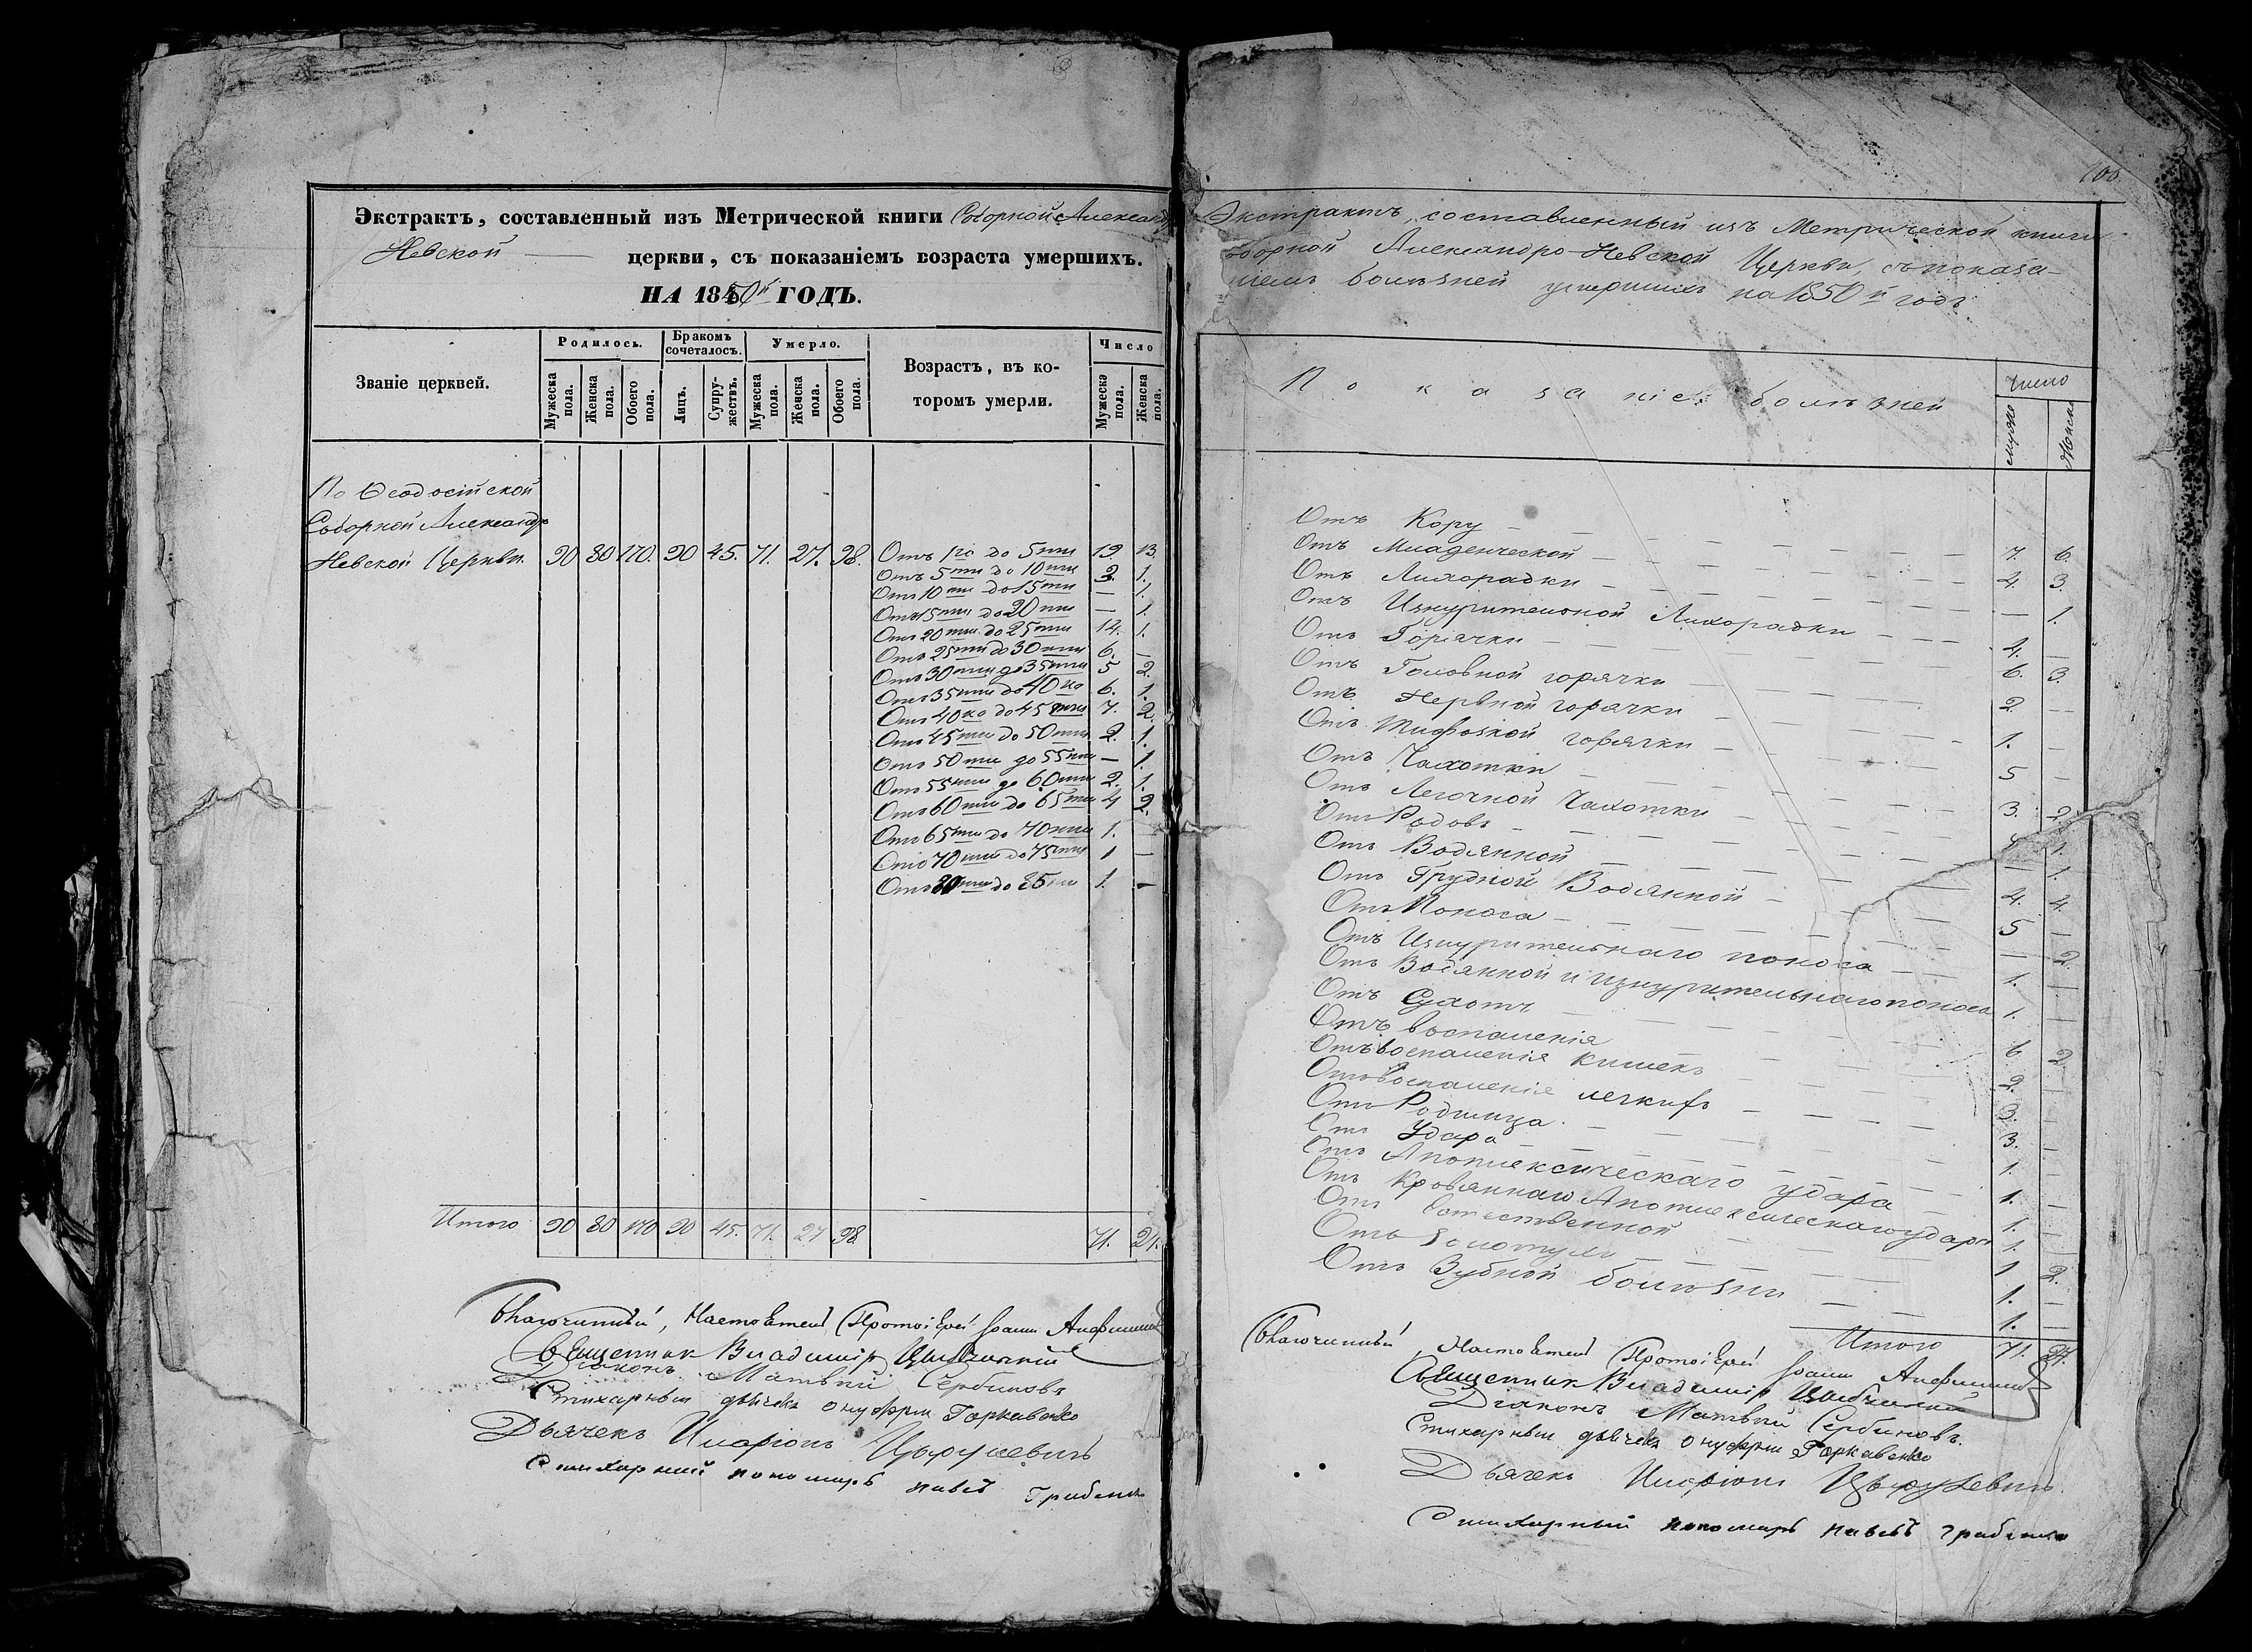 Экстрактъ, составленный изъ Метрической книги Соборной Александро
Невской церкви, съ показаніемъ возраста умершихъ.
НА 1850й ГОДЪ.
Званіе церквей.
Родилось.
Мужеска пола.
Женска пола.
Обоего пола.
Бракомъ сочеталось.
Лицъ.
Супружествъ.
Умерло.
Мужеска пола.
Женска пола.
Обоего пола.
Возрастъ, въ которомъ умерли.
Число
Мужеска пола.
Женска пола.
По Ѳеодосійской
Соборной Александро
Невской Церкви. 90 80 170. 90 45. 71. 27. 98. Отъ 1го до 5ти 19. 13.
Отъ 5ти до 10ти 3. 1.
Отъ 10ти до 15ти — 1.
Отъ 15ти до 20ти — 1.
Отъ 20ти до 25ти 14. 1.
Отъ 25ти до 30ти 6. —
Отъ 30ти до 35ти 5 2.
Отъ 35ти до 40ка 6. 1.
Отъ 40ка до 45ти 7. 2.
Отъ 45ти до 50ти 2. 1.
Отъ 50ти до 55ти — 1.
Отъ 55ти до 60ти 2. 1.
Отъ 60ти до 65ти 4 2.
Отъ 65ти до 70ти 1. —
Отъ 70ти до 75ти 1 —
Отъ 80ти до 85ти 1. —
Итого 90 80 170 90 45. 71. 27 98. 71. 27.
Благочинный, Настоятель Протоіерей Іоаннъ
Священник Владиміръ
Діаконъ Матвѣй Сербиновъ
Стихарный дьячекъ Онуфрій Горкавенко
Дьячекъ Иларіонъ
Стихарный пономарь Павелъ
100.
Экстрактъ, составленный изъ Метрической книги
Соборной Александро-Невской Церкви, съ показа-
ніемъ болѣзней умершихъ на 1850й годъ.
Показаніе болѣзней
Число
Мужска
Женска
Отъ Кору — 7. 6.
Отъ Младенческой — 4. 3.
Отъ Лихорадки — — 1.
Отъ Изнурительной Лихорадки — 4. —
Отъ Горячки — 6. 3.
Отъ Головной горячки — 2. —
Отъ Нервной горячки — 1. —
Отъ Тифозной горячки — 5 —
Отъ Чахотки — 3. 2.
Отъ Легочной Чахотки — 1.
Отъ Родовъ — — 1.
Отъ Водянной — 4. 4.
Отъ Грудной Водянной — 5 —
Отъ Поноса — — 2.
Отъ Изнурительнаго поноса — 1. —
Отъ Водянной и изнурительнаго поноса 1. —
Отъ Сухотъ — 6 2
Отъ воспаленія — 2. —
Отъ воспаленія кишекъ — 3. —
Отъ воспаленія легкихъ — 3. —
Отъ Родимца — 1. —
Отъ Удара — 1. —
Отъ Апоплексическаго удара — 1. —
Отъ Кровяннаго Апоплексическаго удара 1. —
Отъ Естественной — 1 2.
Отъ Золотухи — 1. —
Отъ Зубной болѣзни — 1. —
Итого 71. 27.
Благочинный, Настоятель Протоіерей Іоаннъ
Священник Владиміръ
Діаконъ Матвѣй Сербиновъ.
Стихарный дьячекъ Онуфрій Горкавенко
Дьячекъ Иларіонъ
Стихарный пономарь Павелъ